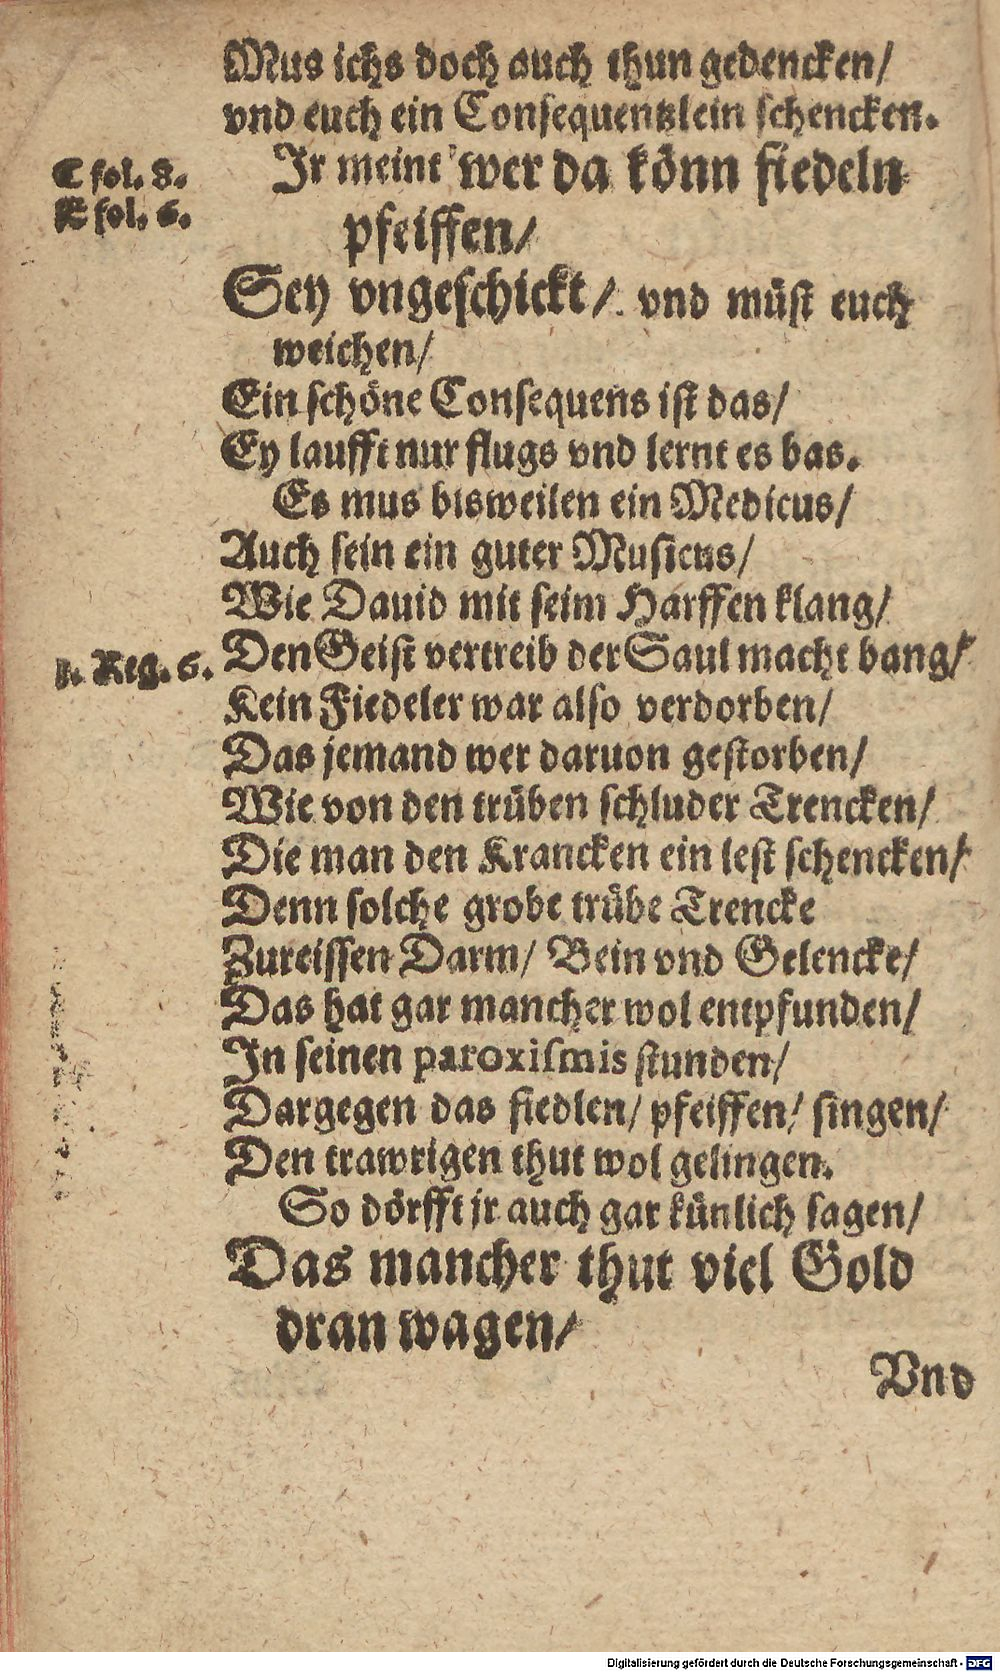 Mus ichs doch auch thun gedencken/
vnd euch ein Consequentzlein schencken.
C fol. 8.
K fol. 6.
Ir meint wer da könn fiedeln
pfeiffen/
Sey vngeschickt/ vnd müst euch
weichen/
Ein schöne Consequens ist das/
Ey laufft nur flugs vnd lernt es bas.
Es mus bisweilen ein Medicus/
Auch sein ein guter Musicus/
Wie Dauid mit seim Harffen klang/
1. Reg. 6.
Den Geist vertreib der Saul macht bang/
Kein Fiedeler war also verdorben/
Das jemand wer daruon gestorben/
Wie von den trüben schluder Trencken/
Die man den Krancken ein lest schencken/
Denn solche grobe trübe Trencke
Zureissen Darm/ Bein vnd Gelencke/
Das hat gar mancher wol entpfunden/
In seinen paroxismis stunden/
Dargegen das fiedlen/ pfeiffen/ singen/
Den trawrigen thut wol gelingen.
So dörfft jr auch gar künlich sagen/
Das mancher thut viel Gold
dran wagen/
Vnd
Digitalisierung gefördert durch die Deutsche Forschungsgemeinschaft - DFG